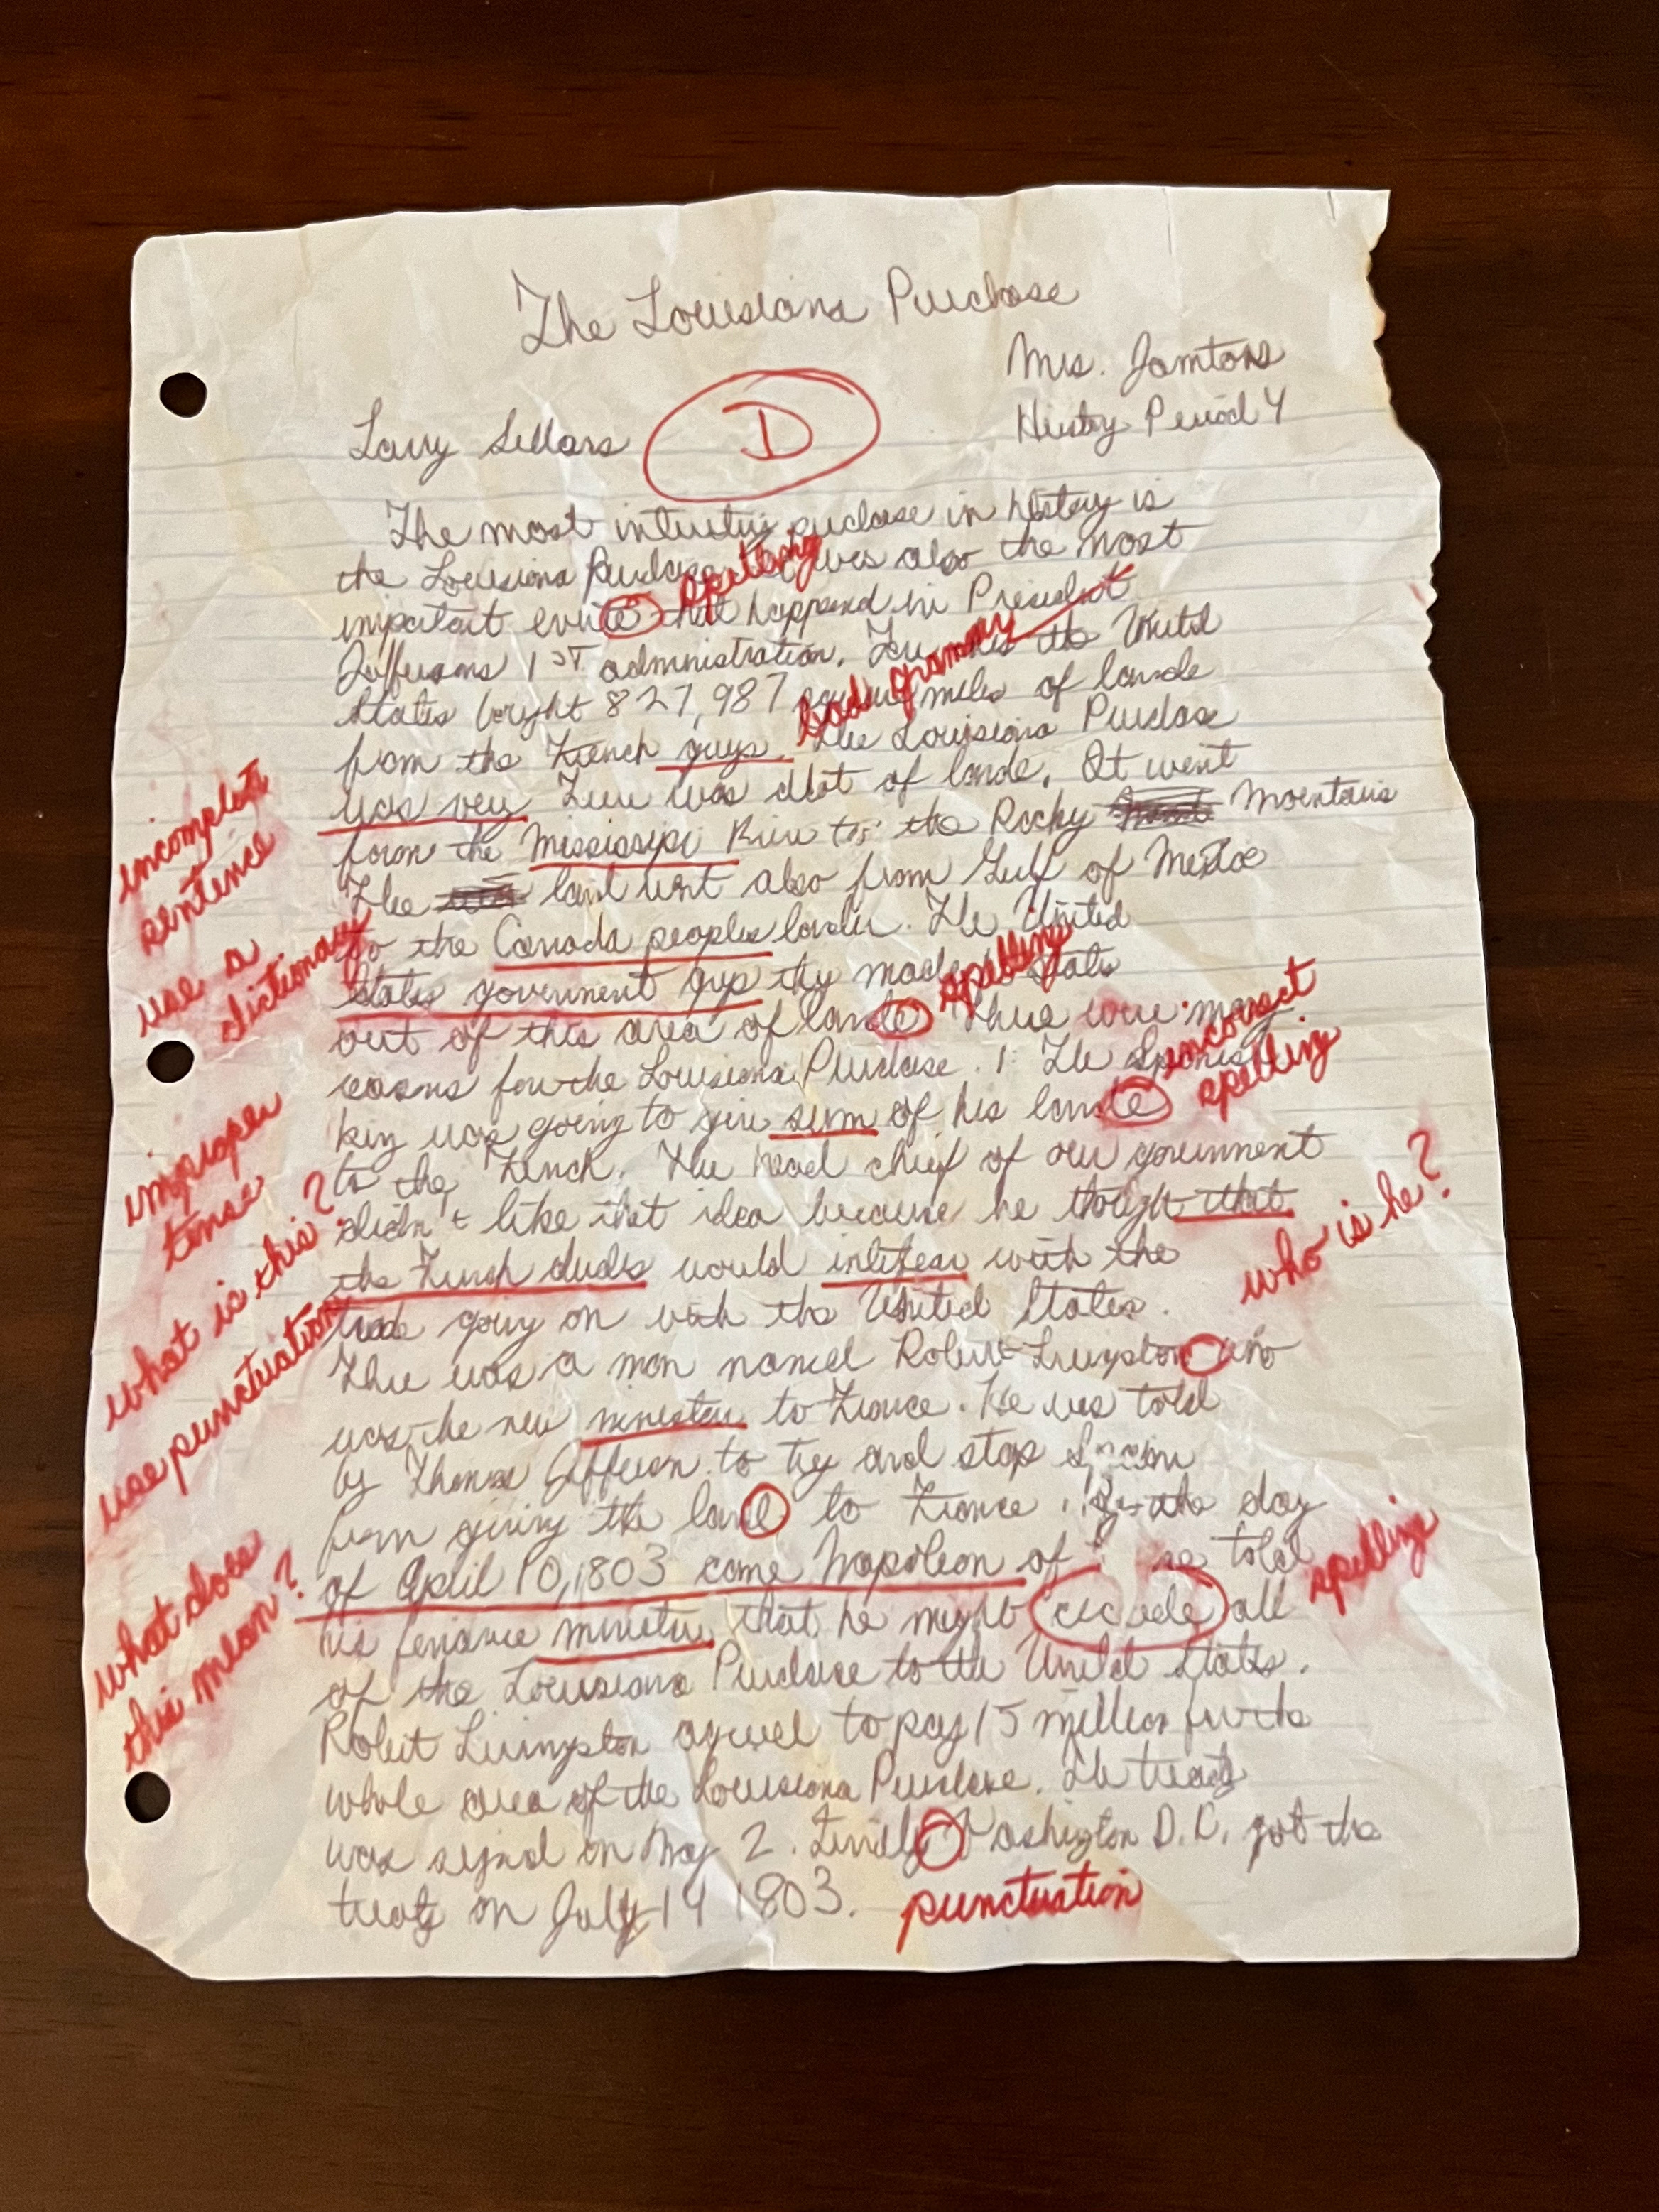 The Louisiana Purchase
Mrs. Jamtoss
History Period 4
Larry Sellars
D
The most purchase in history is
the Louisiana Purchase. It was also the most
spelling
important that happend in President
Jeffersons 1ST administration. the United
bad grammar
States bought 827,987 square miles of lande
from the French guys. The Louisiana Purchase
was very There was alot of lande. It went
incomplete
sentence
from the Mississipi River to the Rocky Mountains
The land went also from Gulf of Mexico
use a
dictionary
to the Canada peoples lander. The United
spelling
States government guys they made States
out of this area of lande There were many
incorrect
spelling
reasons for the Louisiana Purchase. 1: The Spanish
king was going to give sum of his lande
improper
tense
to the French. The head chief of our government
didn't like that idea because he though that
what is this?
who is he?
the French dudes would with the
trade going on with the United States.
use punctuation
There was a man named Robert Livingston who
was the new minister to France. He was told
by Thomas Jefferson to try and stop
from giving the lande to France. the day
of April 10, 1803 come Napoleon of he told
spelling
what does
this mean?
his finance minister that he might all
of the Louisiana Purchase to the United States.
Robert Livingston agreed to pay 15 million for the
whole area of the Louisiana Purchase. The treaty
was signed on May 2. Finally Washington D.C. got the
treaty on July 14 1803.
punctuation